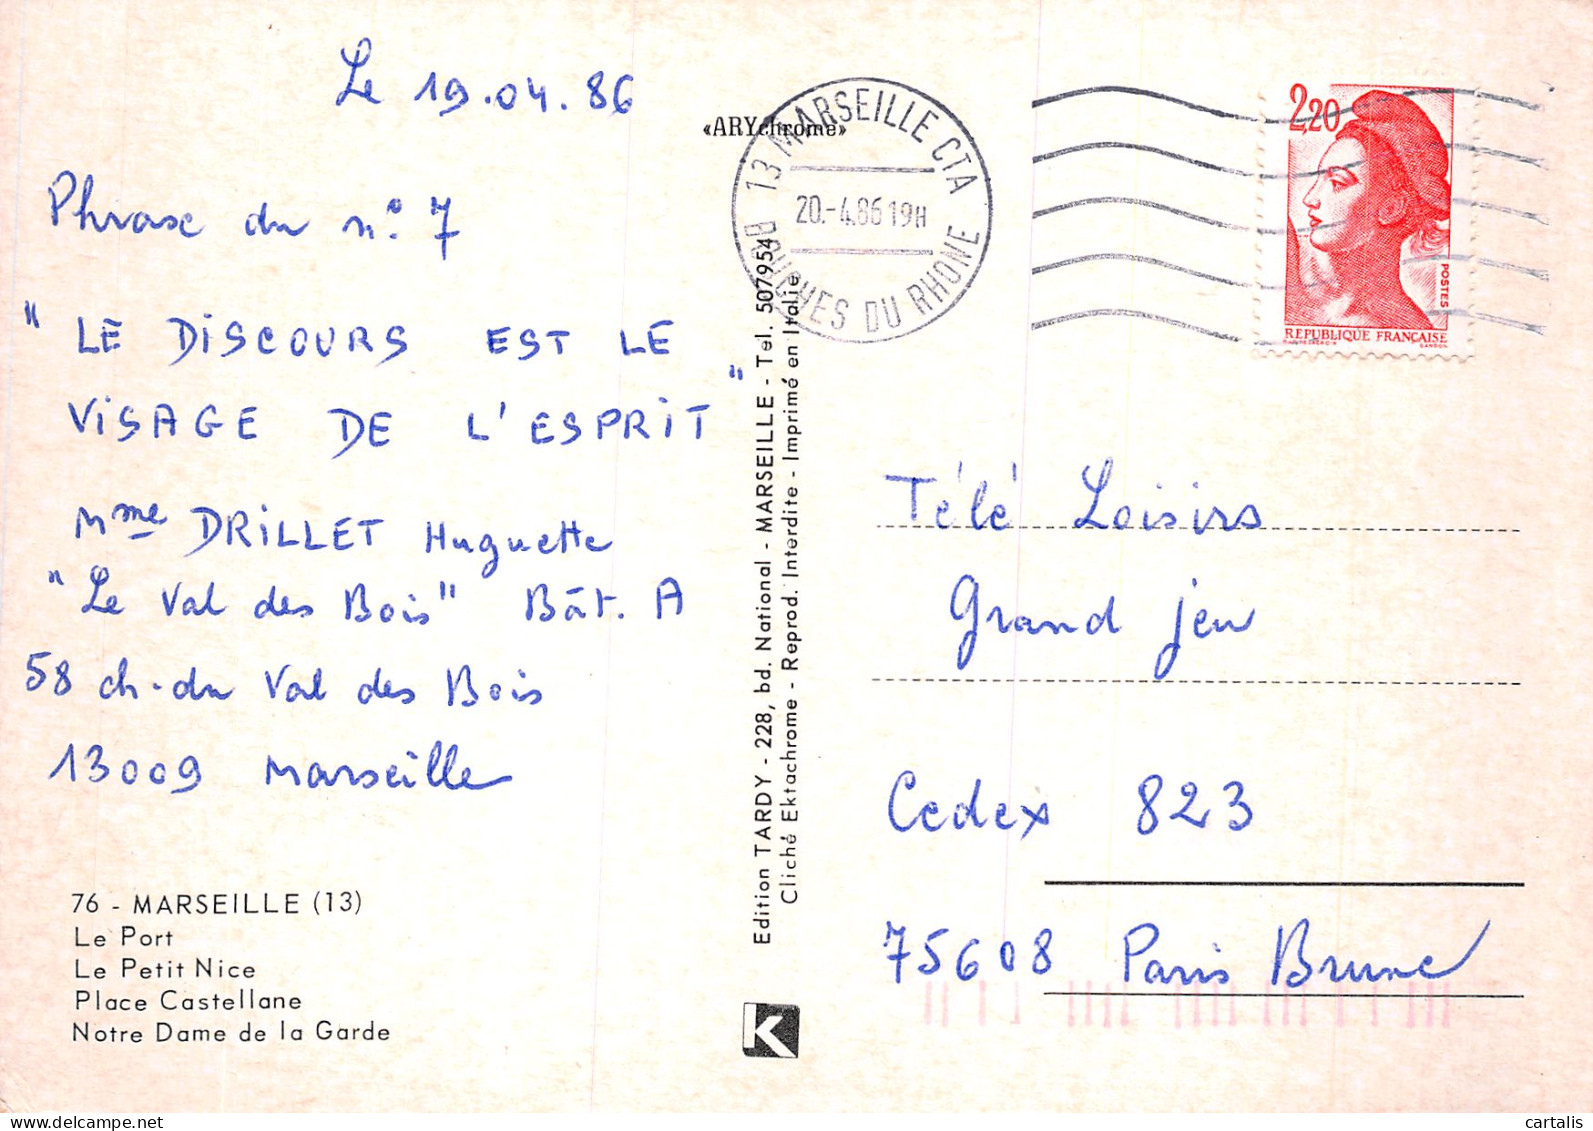 Le 19.04.86
Phrase du n° 7
" LE DISCOURS EST LE
VISAGE DE L'ESPRIT "
Mme DRILLET Huguette
"Le Val des Bois" Bât. A
58 ch. du Val des Bois
13009 Marseille
76 - MARSEILLE (13)
Le Port
Le Petit Nice
Place Castellane
Notre Dame de la Garde
«ARYchrome»
Edition TARDY - 228, bd. National - MARSEILLE - Tél. 507954
Cliché Ektachrome - Reprod. Interdite - Imprimé en Italie
K
13 MARSEILLE CTA
20.-4.86 19H
BOUCHES DU RHONE
2,20
POSTES
REPUBLIQUE FRANÇAISE
GANDON
Télé Loisirs
Grand jeu
Cedex 823
75608 Paris Brune
cartalis